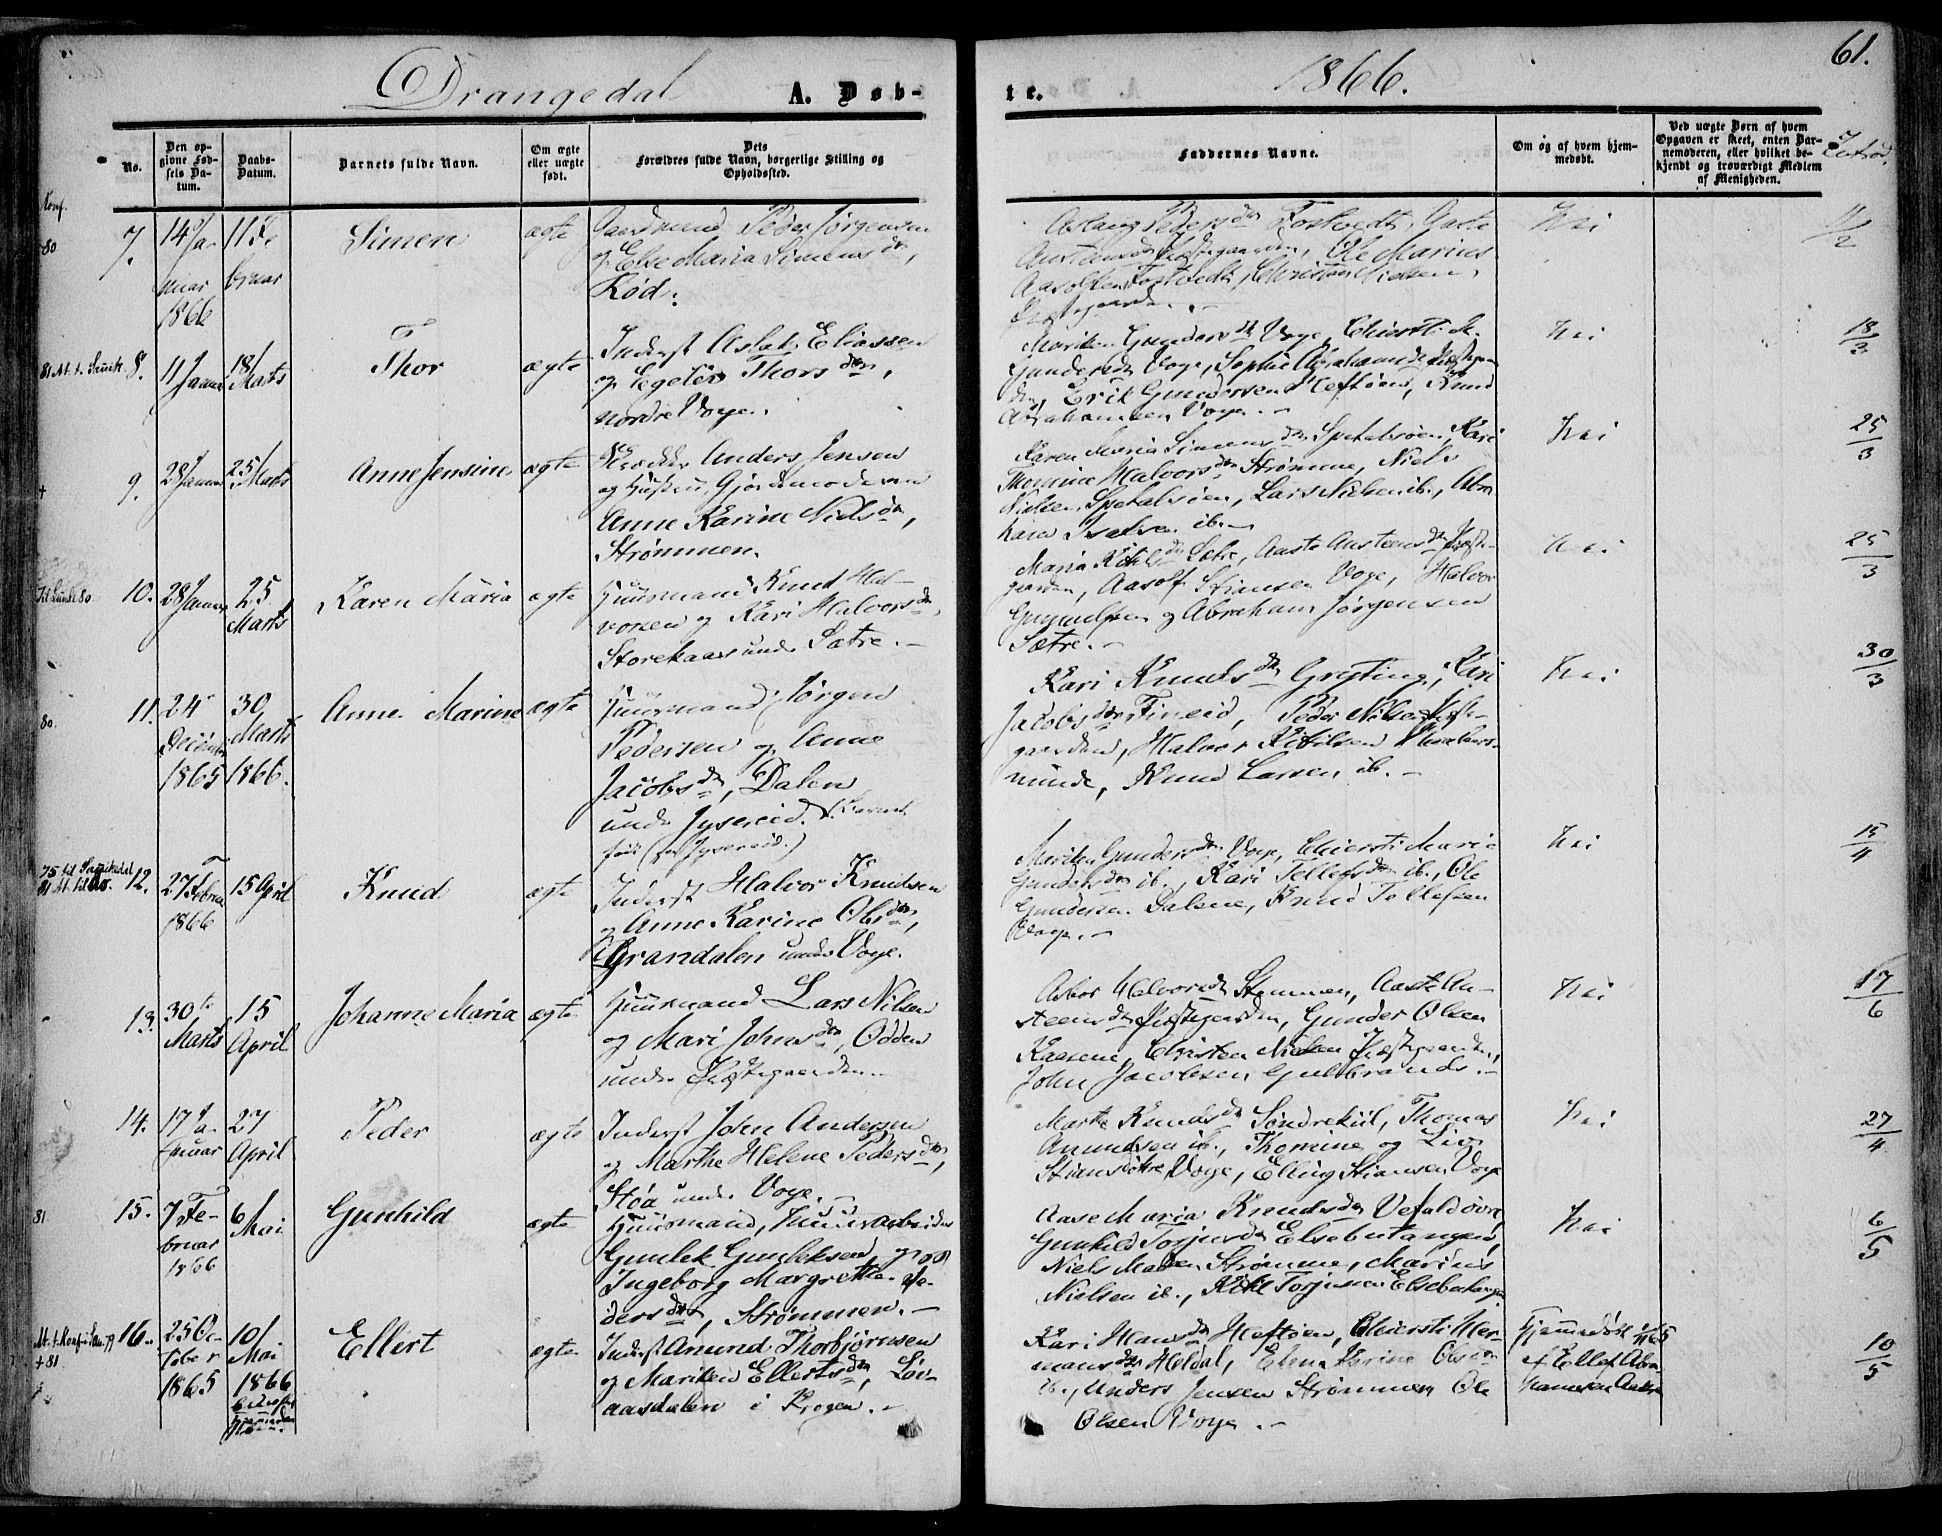 Drangedal A. Døb-
te. 1866. 61.
No.
Den op-
givne Fød-
sels Da-
tum.
Daabs-
Datum.
Barnets fulde Navn.
Om ægte
eller uægte
født.
Dets
Forældres fulde Navn, borgerlige Stilling og
Opholdssted.
Faddernes Navne.
Om og af hvem hjem-
medøbt.
Ved uægte Børn af hvem
Opgaven er skeet, enten Bar-
nemoderen, eller hvilket be-
kjendt og troværdigt Medlem
af Menigheden.
Introd.
Konf.
80
7.
14 Ja-
nuar
1866
11 Fe
bruar
Simen
ægte
Gaardmand Peder Jørgensen
og Else Maria Simensdr,
Kød.
Aslaug Pedersdr Fostvedt, Aaste
Austensdr Præstegaarden, Ole Marius
Aasolfsen Fostvedt, Christen Nielsen,
Præstegaarden.
Nei
11/2
8.
11 Januar
18/
Marts
Thor
ægte
Inderst Aslak Eliassen
og Segelev Thorsdtr,
nordre Voje.
Mariken Gundersdtr Voje, Chiersti M.
Gundersdr Voje, Sophie Abrahamsdr Præstegaar
den, Erik Gundersen Heftøen, Knud
Abrahamsen Voje.
Nei
18/3
+
9.
28 Januar
25 Marts
Anne Jensine
ægte
Anders Jensen
og Hustru, Gjordemoderen
Anne Karine Nielsdtr,
Strømmen.
Karen Maria Simensdtr Spekalsøen, Kari
Thomine Halvorsdtr Strømme, Niels
Nielsen Spekalsøen, Lars Nielsen ib., Abra
ham Isaksen ib.
Nei
25/3
Til Lunde 80
10.
28 Januar
25
Marts
Karen Maria
ægte
Huusmand Knud Hal-
vorsen og Kari Halvorsdtr
Storekaas under Sætre.
Maria Kittilsdr Sætre, Aaste Austensdr Præste-
gaarden, Aasolf Stiansen Voje, Halvor
Gunnulfsen og Abraham Jørgensen
Sætre.
Nei
25/3
80.
11.
24
December
1865
30
Marts
1866.
Anne Marine
ægte
Huusmand Jørgen
Pedersen og Anne
Jacobsdr, Dalen
under Jysereid. (Barnet
født paa Jysereid.)
Kari Knudsdtr Gryting, Kari
Jacobsdtr Fineid, Peder Nilsen Præste-
gaarden, Halvor Kittilsen
munde, Knud Larsen ib.
Nei
30/3
12.
27 Februar
1866
15 April
Knud
ægte
Inderst Halvor Knudsen
og Anne Karine Olsdtr,
Grandalen under Voje.
Mariken Gundersdtr Voje, Chiersti Marie
Gundersdtr ib., Kari Tellefsdtr ib., Ole
Gundersen Dalene, Knud Tellefsen
Voje.
Nei
15/4
13.
30te
Marts
15
April
Johanne Maria
ægte
Huusmand Lars Nilsen
og Mari Johnsdtr, Odden
under Præstegaarden.
Asbor Halvorsdr Stemmen, Aaste Au-
steensdtr Præstegaarden, Gunder Olsen
Kaasene, Christen Nielsen Præstegaarden,
John Jacobsen Gulbrands.
Nei
17/6
14.
17 Ja-
nuar
27
April
Peder
ægte
Inderst John Andersen
og Marthe Helene Pedersdtr,
Støa under Voje.
Marthe Knudsdr Søndrekiil, Thomas
Amundsen ib., Thomine og Liv
Stiansdøtre Voje, Elling Stiansen Voje
Nei
27/4
81
15.
7 Fe-
bruar
1866
6
Mai
Gunhild
ægte
Huusmand,
Gunlek Gunleksen og
Ingeborg Margrethe Pe-
dersdtr, Strømmen.
Aase Maria Knudsdtr Vefaldøvre,
Gunhild Torjusdr Elsebutangen,
Niels Madsen Strømme, Marius
Nielsen ib., Kittil Torjusen Elsebutangen
Nei
6/5
+ 81
16.
25 Oc
tober
1865
10
Mai
1866
Ellert
ægte
Inderst Amund Thorbjørnsen
og Mariken Ellertsdtr, Lov-
aasdalen i Krogen.
Kari Hansdtr Heftøen, Chiersti Her-
mansdtr Heldal, Karine Olsdtr
ib., Anders Jensen Strømmen, Ole
Olsen Voje.
Hjemmedøbt
af Tellef Abra
hamsen
10/5